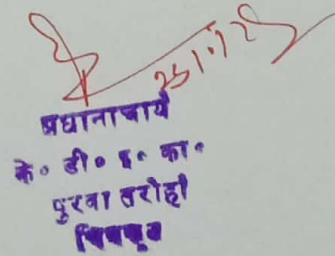 25/1/25
प्रधानाचार्य
के० डी० इ० का०
पुरवा तरोही
चित्रकूट